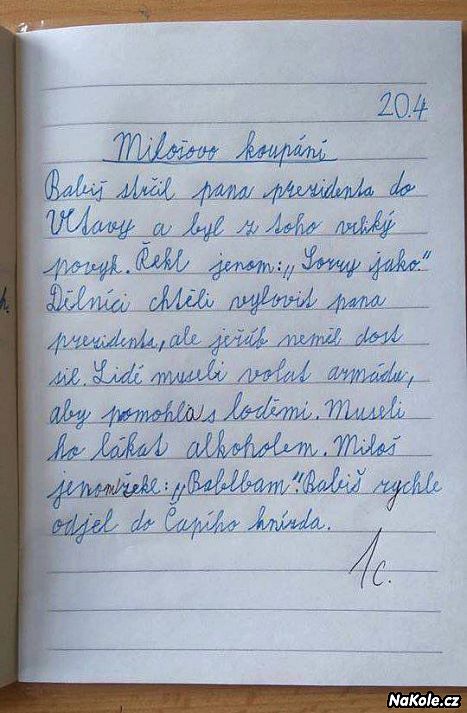 20.4
Milošovo koupání
Babiš strčil pana prezidenta do
Vltavy a byl z toho veliký
povyk. Řekl jenom: „Sorry jako."
Dělníci chtěli vylovit pana
prezidenta, ale jeřáb neměl dost
sil. Lidé museli volat armádu,
aby pomohla s loděmi. Museli
ho lákat alkoholem. Miloš
jenom řekl: „Bablbam". Babiš rychle
odjel do Čapího hnízda.
1c.
NaKole.cz